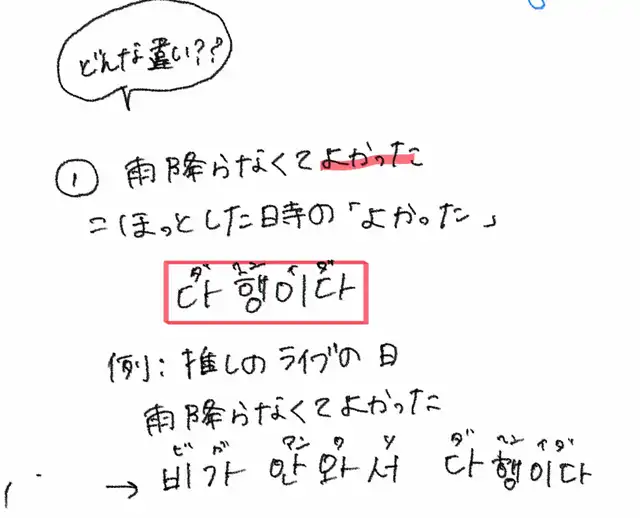 どんな違い??
① 雨降らなくてよかった
=ほっとした時の「よかった」
ダ ヘン イ ダ
다행이다
例: 推しのライブの日
雨降らなくてよかった
ビ ガ アン ワ ソ ダ ヘン イ ダ
→ 비가 안와서 다행이다